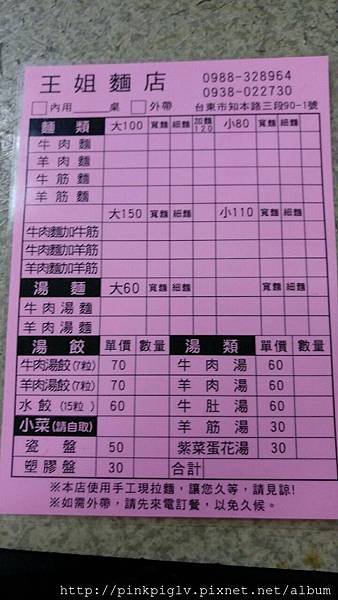 王姐麵店
0988-328964
0938-022730
內用 桌 外帶 台東市知本路三段90-1號
麵類 大100 寬麵 細麵 加麵120 小80 寬麵 細麵
牛肉麵
羊肉麵
牛筋麵
羊筋麵
大150 寬麵 細麵 小110 寬麵 細麵
牛肉麵加牛筋
牛肉麵加羊筋
羊肉麵加羊筋
湯麵 大60 寬麵 細麵 寬麵 細麵
牛肉湯麵
羊肉湯麵
湯餃 單價 數量 湯類 單價 數量
牛肉湯餃(7粒) 70 牛肉湯 60
羊肉湯餃(7粒) 70 羊肉湯 60
水餃(15粒) 60 牛肚湯 60
小菜(請自取) 羊筋湯 30
瓷盤 50 紫菜蛋花湯 30
塑膠盤 30 合計
※本店使用手工現拉麵，讓您久等，請見諒!
※如需外帶，請先來電訂餐，以免久候。
http://pinkpiglv.pixnet.net/album